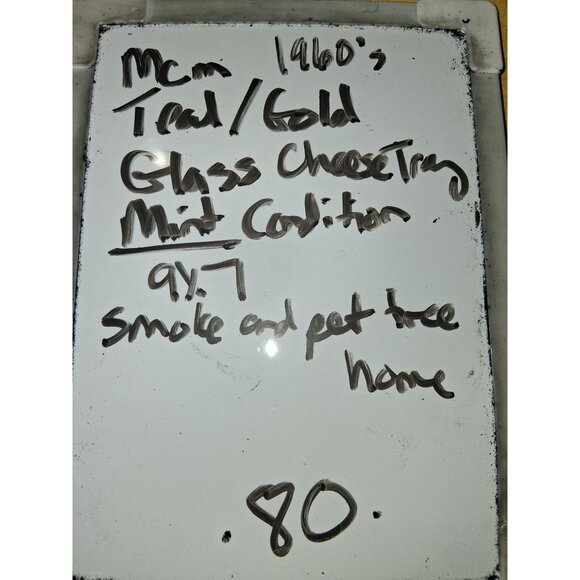 Mcm 1960's
Teal/Gold
Glass Cheese Tray
Mint Condition
9x7
smoke and pet free
home
.80.